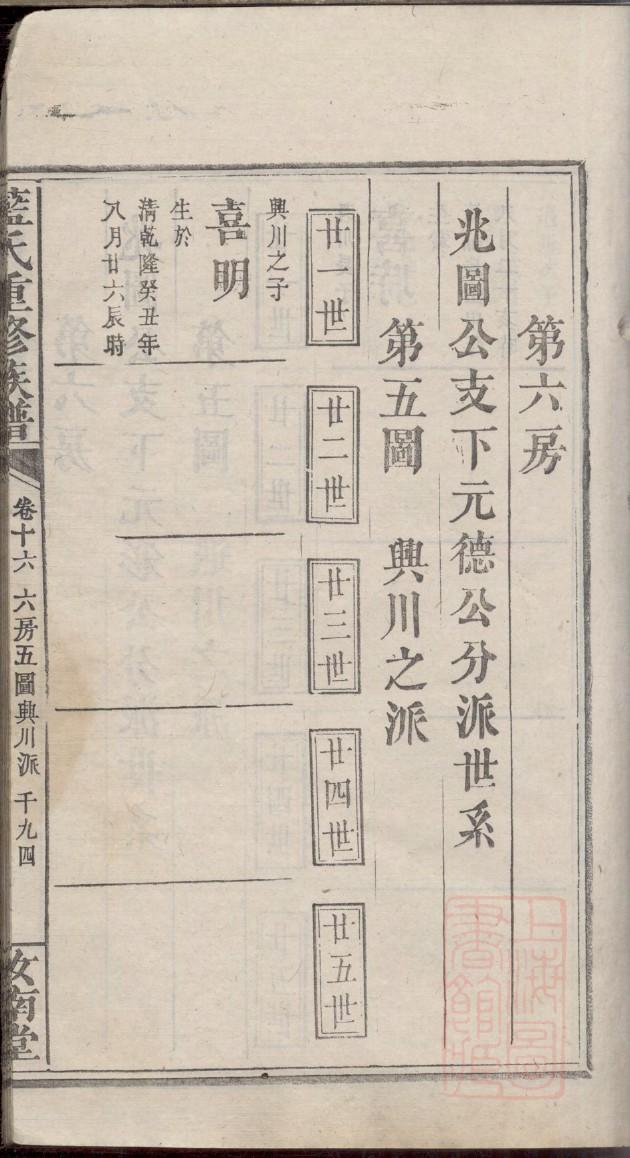 第六房
兆圖公支下元德公分派世系
第五圖 興川之派
廿一世
廿二世
廿三世
廿四世
廿五世
興川之子
喜明
生於
清乾隆癸丑年
八月廿六辰時
藍氏重修族譜
卷十六 六房五圖興川派 千九四
汝南堂
上海圖書館藏